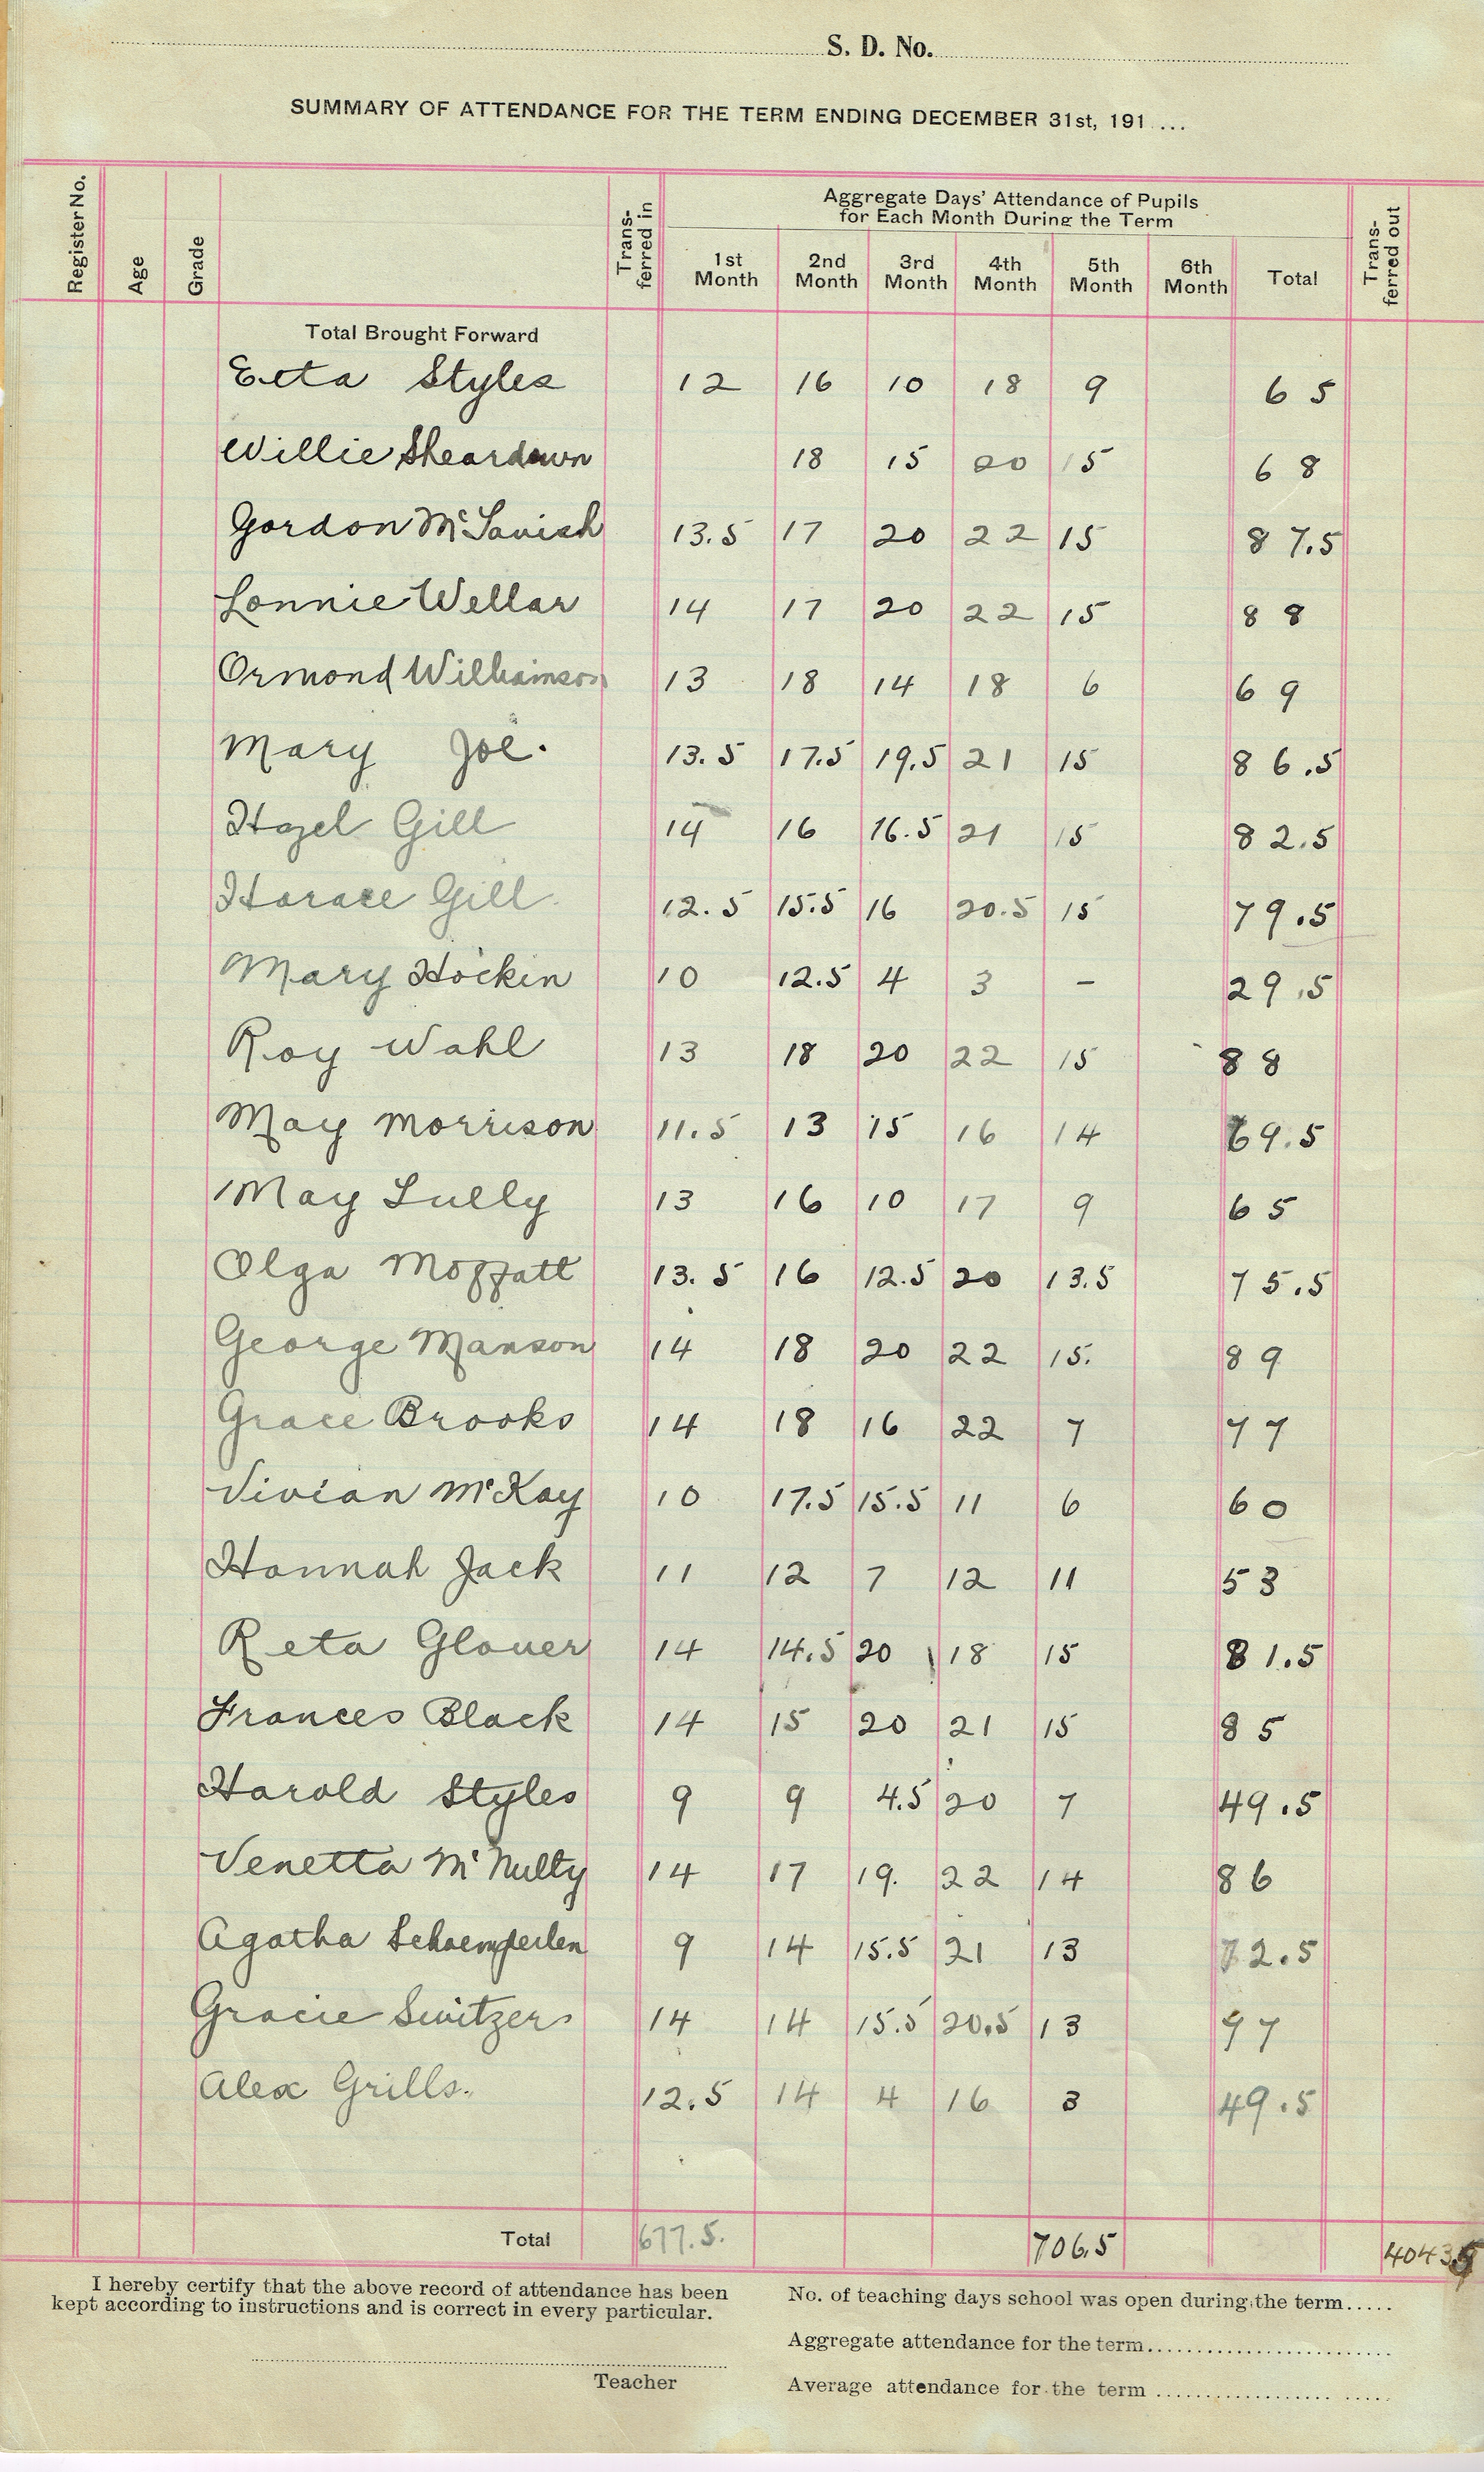 S. D. No.
SUMMARY OF ATTENDANCE FOR THE TERM ENDING DECEMBER 31st, 191 ...
Register No. Age Grade Trans-ferred in Aggregate Days' Attendance of Pupils for Each Month During the Term Trans-ferred out
1st Month 2nd Month 3rd Month 4th Month 5th Month 6th Month Total
Total Brought Forward
Etta Styles 12 16 10 18 9 65
Willie Sheardown 18 15 20 15 68
Gordon McTavish 13.5 17 20 22 15 87.5
Lonnie Wellar 14 17 20 22 15 88
Ormond Williamson 13 18 14 18 6 69
Mary Joe. 13.5 17.5 19.5 21 15 86.5
Hazel Gill 14 16 16.5 21 15 82.5
Horace Gill 12.5 15.5 16 20.5 15 79.5
Mary Hockin 10 12.5 4 3 - 29.5
Roy Wahl 13 18 20 22 15 88
May Morrison 11.5 13 15 16 14 69.5
May Lully 13 16 10 17 9 65
Olga Moffatt 13.5 16 12.5 20 13.5 75.5
George Manson 14 18 20 22 15. 89
Grace Brooks 14 18 16 22 7 77
Vivian McKay 10 17.5 15.5 11 6 60
Hannah Jack 11 12 7 12 11 53
Reta Glover 14 14.5 20 18 15 81.5
Frances Black 14 15 20 21 15 85
Harold Styles 9 9 4.5 20 7 49.5
Venetta McNulty 14 17 19. 22 14 86
Agatha Schaemperlen 9 14 15.5 21 13 72.5
Gracie Switzer 14 14 15.5 20.5 13 97
Alex Grills. 12.5 14 4 16 3 49.5
Total 677.5. 706.5 4043.5
I hereby certify that the above record of attendance has been
kept according to instructions and is correct in every particular.
Teacher
No. of teaching days school was open during the term.....
Aggregate attendance for the term........................
Average attendance for the term ........................